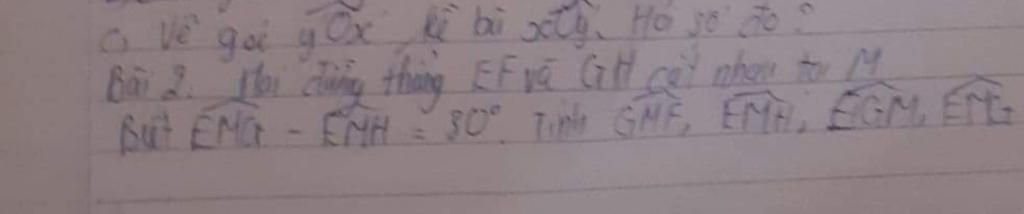 c, Vẽ góc yOx' kề bù xOy. Hỏi số đo?
Bài 2. Hai đường thẳng EF và GH cắt nhau tại M
Biết EMG - EMH = 30°. Tính GMF, EMH, EGM, EMG